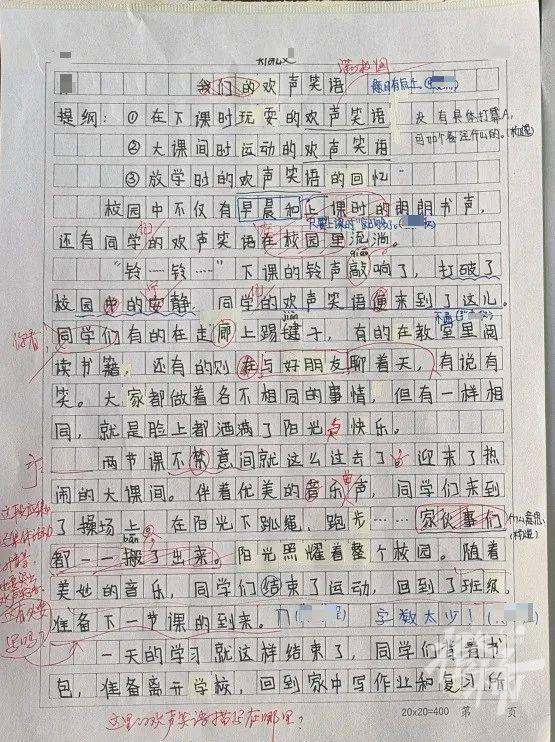 我们的欢声笑语
提纲：①在下课时玩耍的欢声笑语
②大课间时运动的欢声笑语
③放学时的欢声笑语的回忆
校园中不仅有早晨和上课时的朗朗书声，
还有同学的欢声笑语在校园里流淌。
“铃……铃……”下课的铃声敲响了，打破了
校园中的安静。同学的欢声笑语便来到了这儿。
同学们有的在走廊上踢毽子，有的在教室里阅
jiàn
读书籍，还有的则在与好朋友聊着天，有说有
笑。大家都做着各不相同的事情，但有一样相
同，就是脸上都洒满了阳光点快乐。
两节课不禁意间就这么过去了，迎来了热
闹的大课间。伴着优美的音乐声，同学们来到
了操场上，在阳光下跳绳，跑步……家伙事们
bān
都一一搬了出来。阳光照耀着整个校园。随着
美妙的音乐，同学们结束了运动，回到了班级。
准备下一节课的到来。
字数太少！
一天的学习就这样结束了，同学们背着书
包，准备离开学校，回到家中写作业和复习所
20×20=400 第 页
这里的欢声笑语描写在哪里？